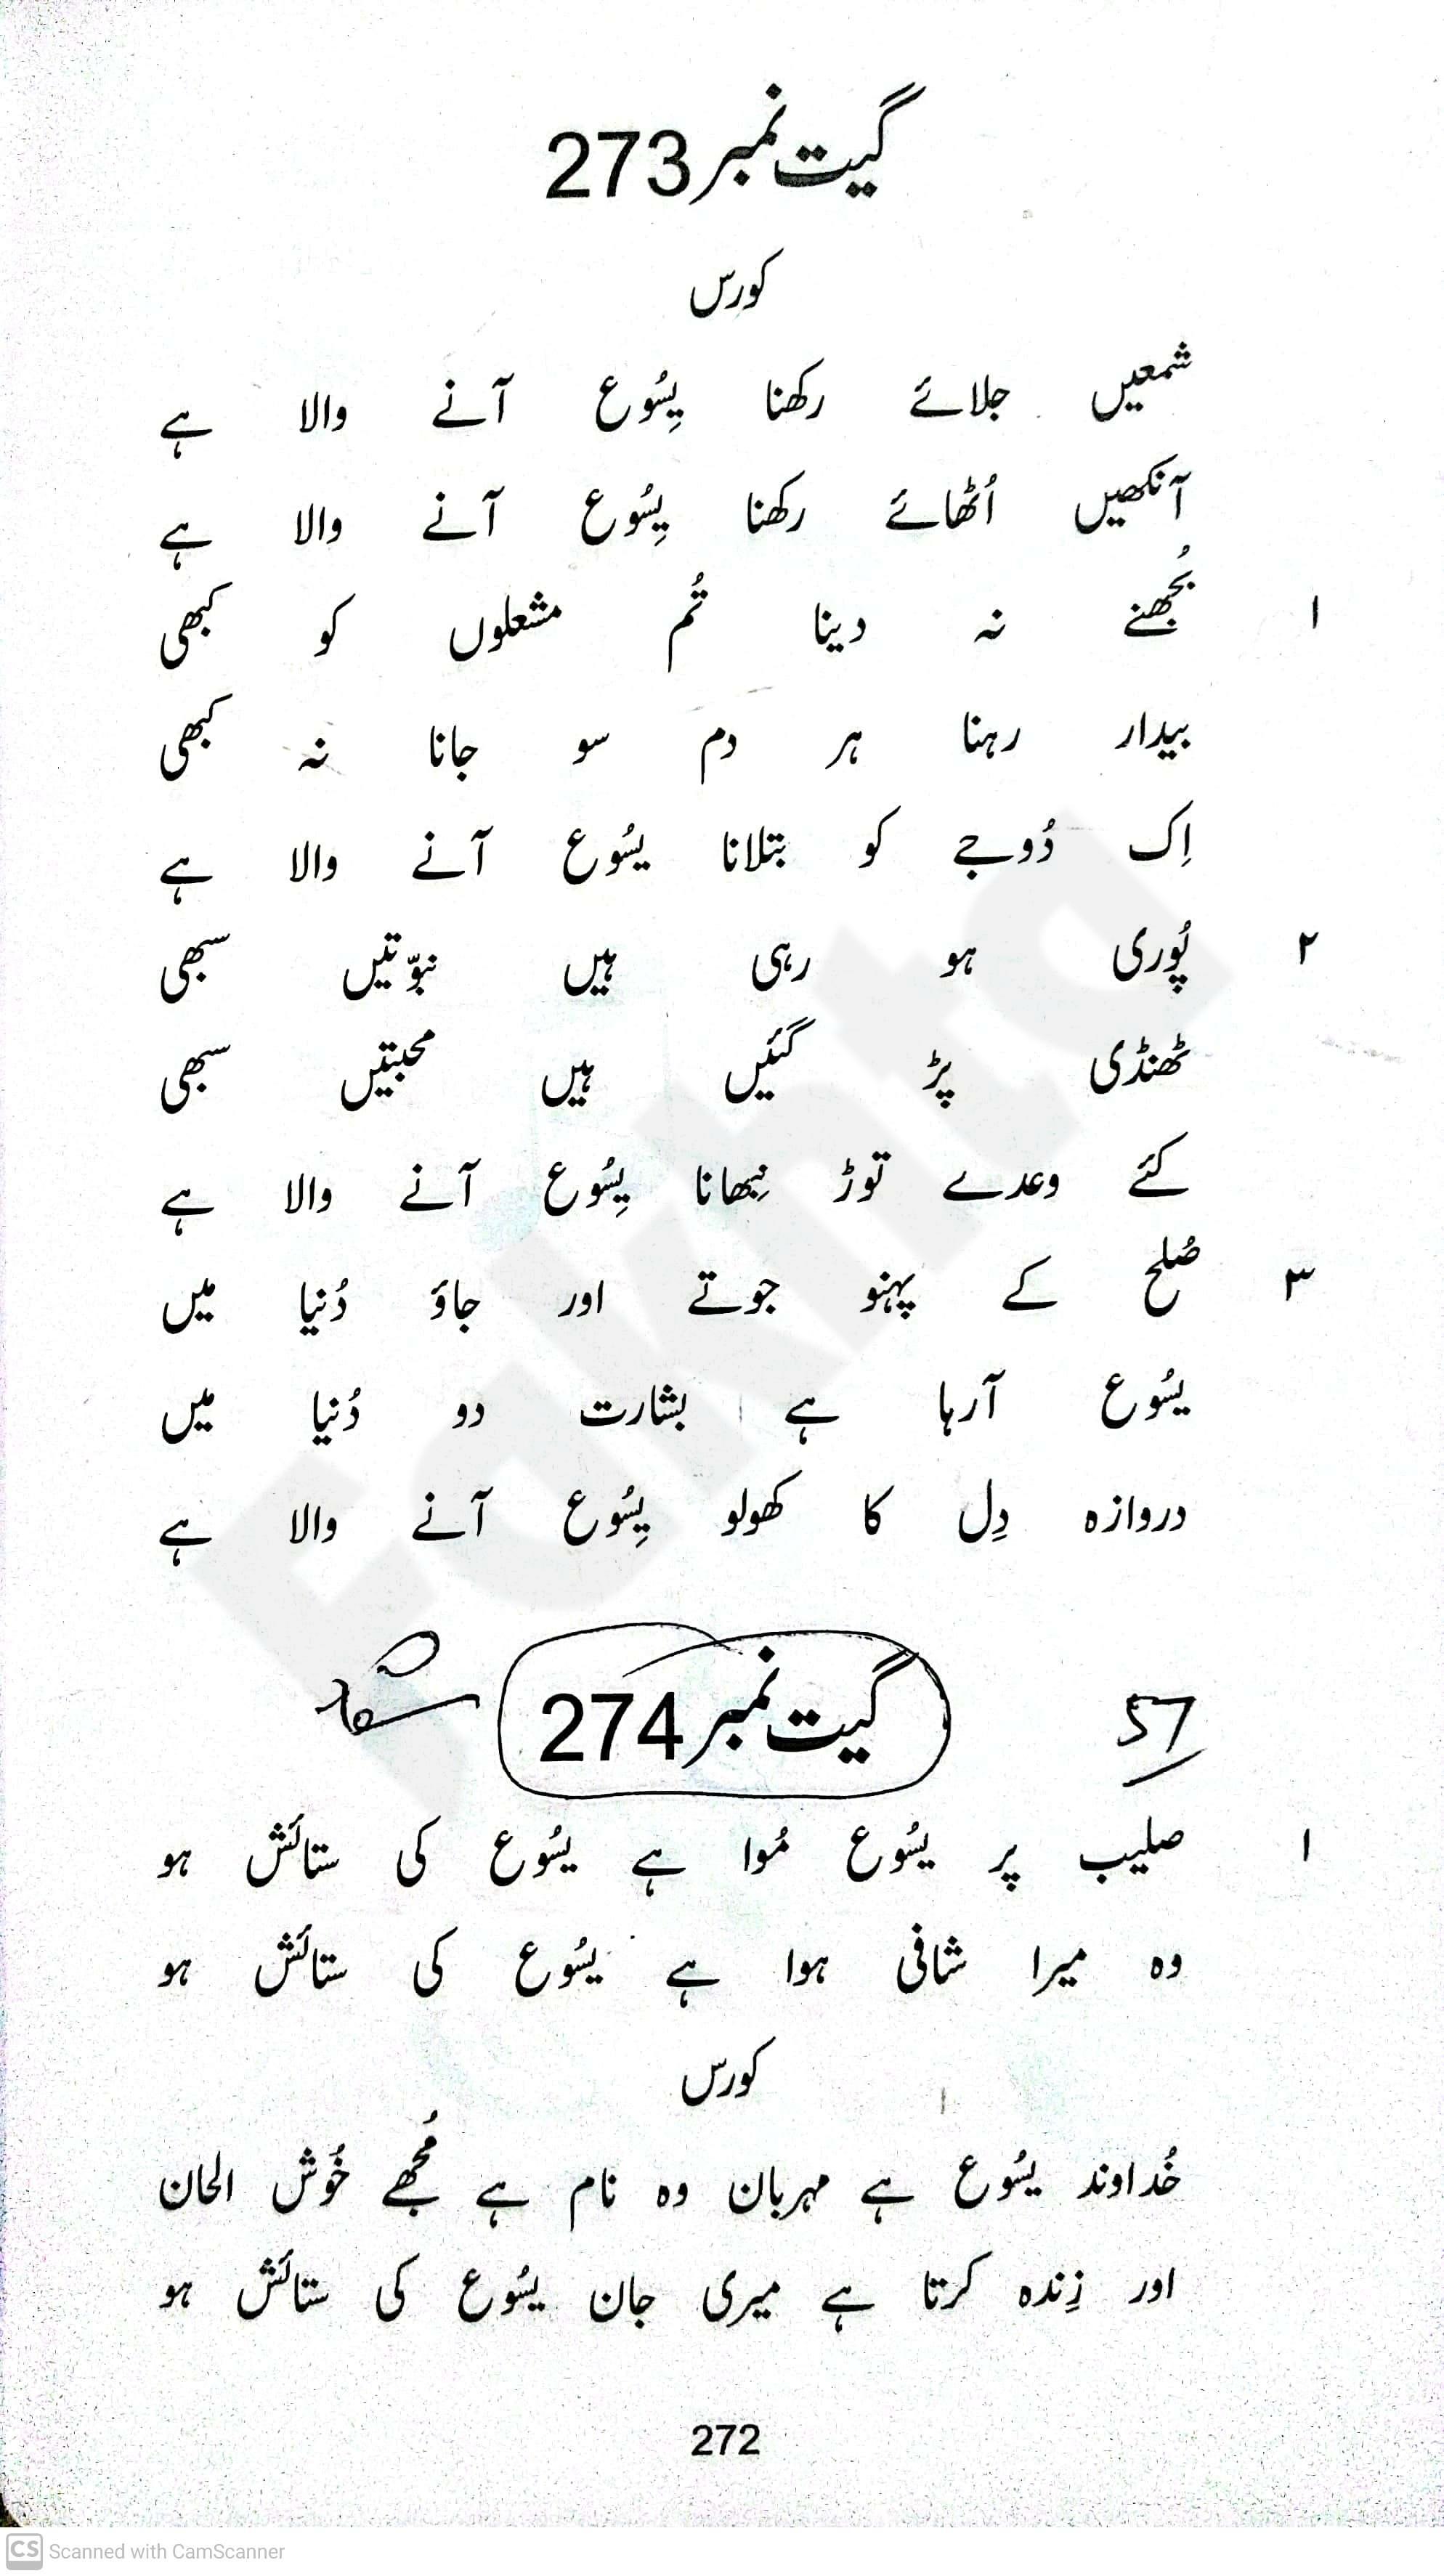 گیت نمبر 273
کورس
شمعیں جلائے رکھنا یِسُوع آنے والا ہے
آنکھیں اُٹھائے رکھنا یِسُوع آنے والا ہے
۱ بُجھنے نہ دینا تُم مشعلوں کو کبھی
بیدار رہنا ہر دم سو جانا نہ کبھی
اِک دُوجے کو بتلانا یسُوع آنے والا ہے
۲ پُوری ہو رہی ہیں نبوّتیں سبھی
ٹھنڈی پڑ گئیں ہیں محبتیں سبھی
کئے وعدے توڑ نِبھانا یِسُوع آنے والا ہے
۳ صُلح کے پہنو جوتے اور جاؤ دُنیا میں
یسُوع آرہا ہے بشارت دو دُنیا میں
دروازہ دِل کا کھولو یِسُوع آنے والا ہے
57 گیت نمبر 274
۱ صلیب پر یسُوع مُوا ہے یسُوع کی ستائش ہو
وہ میرا شافی ہوا ہے یسُوع کی ستائش ہو
کورس
خُداوند یسُوع ہے مہربان وہ نام ہے مُجھے خُوش الحان
اور زِندہ کرتا ہے میری جان یسُوع کی ستائش ہو
272
Fakhta
CS Scanned with CamScanner